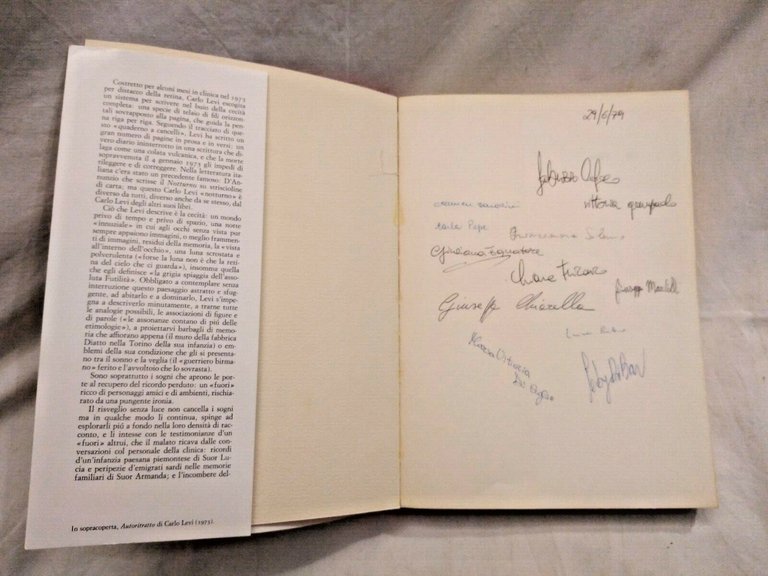 Costretto per alcuni mesi in clinica nel 1973
per distacco della retina, Carlo Levi escogita
un sistema per scrivere nel buio della cecità
completa: una specie di telaio di fili orizzon-
tali sovrapposto alla pagina, che guida la pen-
na riga per riga. Seguendo il tracciato di que-
sto «quaderno a cancelli», Levi ha scritto un
gran numero di pagine in prosa e in versi: un
vero diario ininterrotto in una scrittura che di-
laga come una colata vulcanica, e che la morte
sopravvenuta il 4 gennaio 1975 gli impedí di
rileggere e di correggere. Nella letteratura ita-
liana c'era stato un precedente famoso: D'An-
nunzio che scrisse il Notturno su striscioline
di carta; ma questo Carlo Levi «notturno» è
diverso da tutti, diverso anche da se stesso, dal
Carlo Levi degli altri suoi libri.
Ciò che Levi descrive è la cecità: un mondo
privo di tempo e privo di spazio, una notte
«innuziale» in cui agli occhi senza vista pur
sempre appaiono immagini, o meglio frammen-
ti di immagini, residui della memoria, la «vista
all'interno dell'occhio», una luna scrostata e
polverulenta («forse la luna non è che la reti-
na del cielo che ci guarda»), insomma quella
che egli definisce «la grigia spiaggia dell'asso-
luta Futilità». Obbligato a contemplare senza
interruzione questo paesaggio astratto e sfug-
gente, ad abitarlo e a dominarlo, Levi s'impe-
gna a descriverlo minutamente, a trarne tutte
le analogie possibili, le associazioni di figure e
di parole («le assonanze contano di piú delle
etimologie»), a proiettarvi barbagli di memo-
ria che affiorano appena (il muro della fabbrica
Diatto nella Torino della sua infanzia) o em-
blemi della sua condizione che gli si presenta-
no tra il sonno e la veglia (il «guerriero birma-
no» ferito e l'avvoltoio che lo sovrasta).
Sono soprattutto i sogni che aprono le por-
te al recupero del ricordo perduto: un «fuori»
ricco di personaggi amici e di ambienti, rischia-
rato da una pungente ironia.
Il risveglio senza luce non cancella i sogni
ma in qualche modo li continua, spinge ad
esplorarli piú a fondo nella loro densità di rac-
conto, e li intesse con le testimonianze d'un
«fuori» altrui, che il malato ricava dalle con-
versazioni col personale della clinica: ricordi
d'un'infanzia paesana piemontese di Suor Lu-
cia e peripezie d'emigrati sardi nelle memorie
familiari di Suor Armanda; e l'incombere del-
In sopracoperta, Autoritratto di Carlo Levi (1973).
29/6/79
Fabrizio
Vittoria
Pepe
Giuliana
Chiara
Giuseppe
Giuseppe Chiarella
Maria